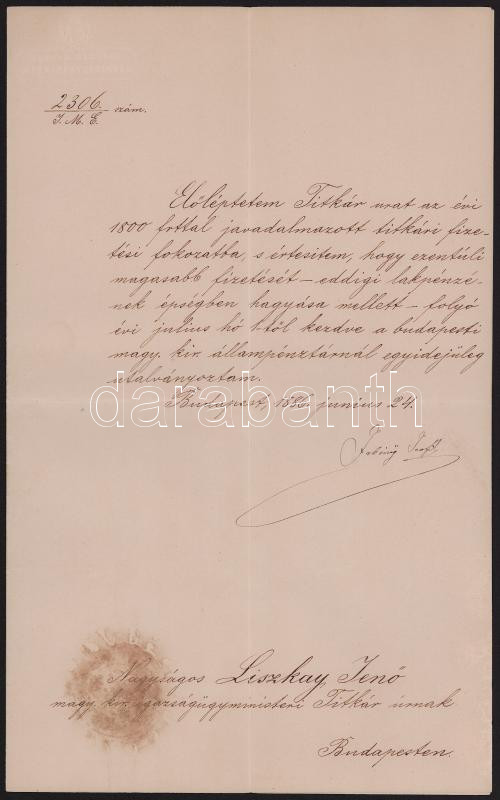 2306. szám.
I. M. E.
Előléptetem Titkár urat az évi
1800 frttal javadalmazott titkári fize-
tési fokozatba, s értesitem, hogy ezentúli
magasabb fizetését – eddigi lakpénzé-
nek épségben hagyása mellett – folyó
évi julius hó 1-től kezdve a budapesti
magy. kir. állampénztárnál egyidejüleg
utalványoztam.
Budapest, 1886. junius 24.
darabanth
Fabiny
Nagyságos Liszkay Jenő
magy. kir. igazságügyministeri Titkár úrnak
Budapesten.